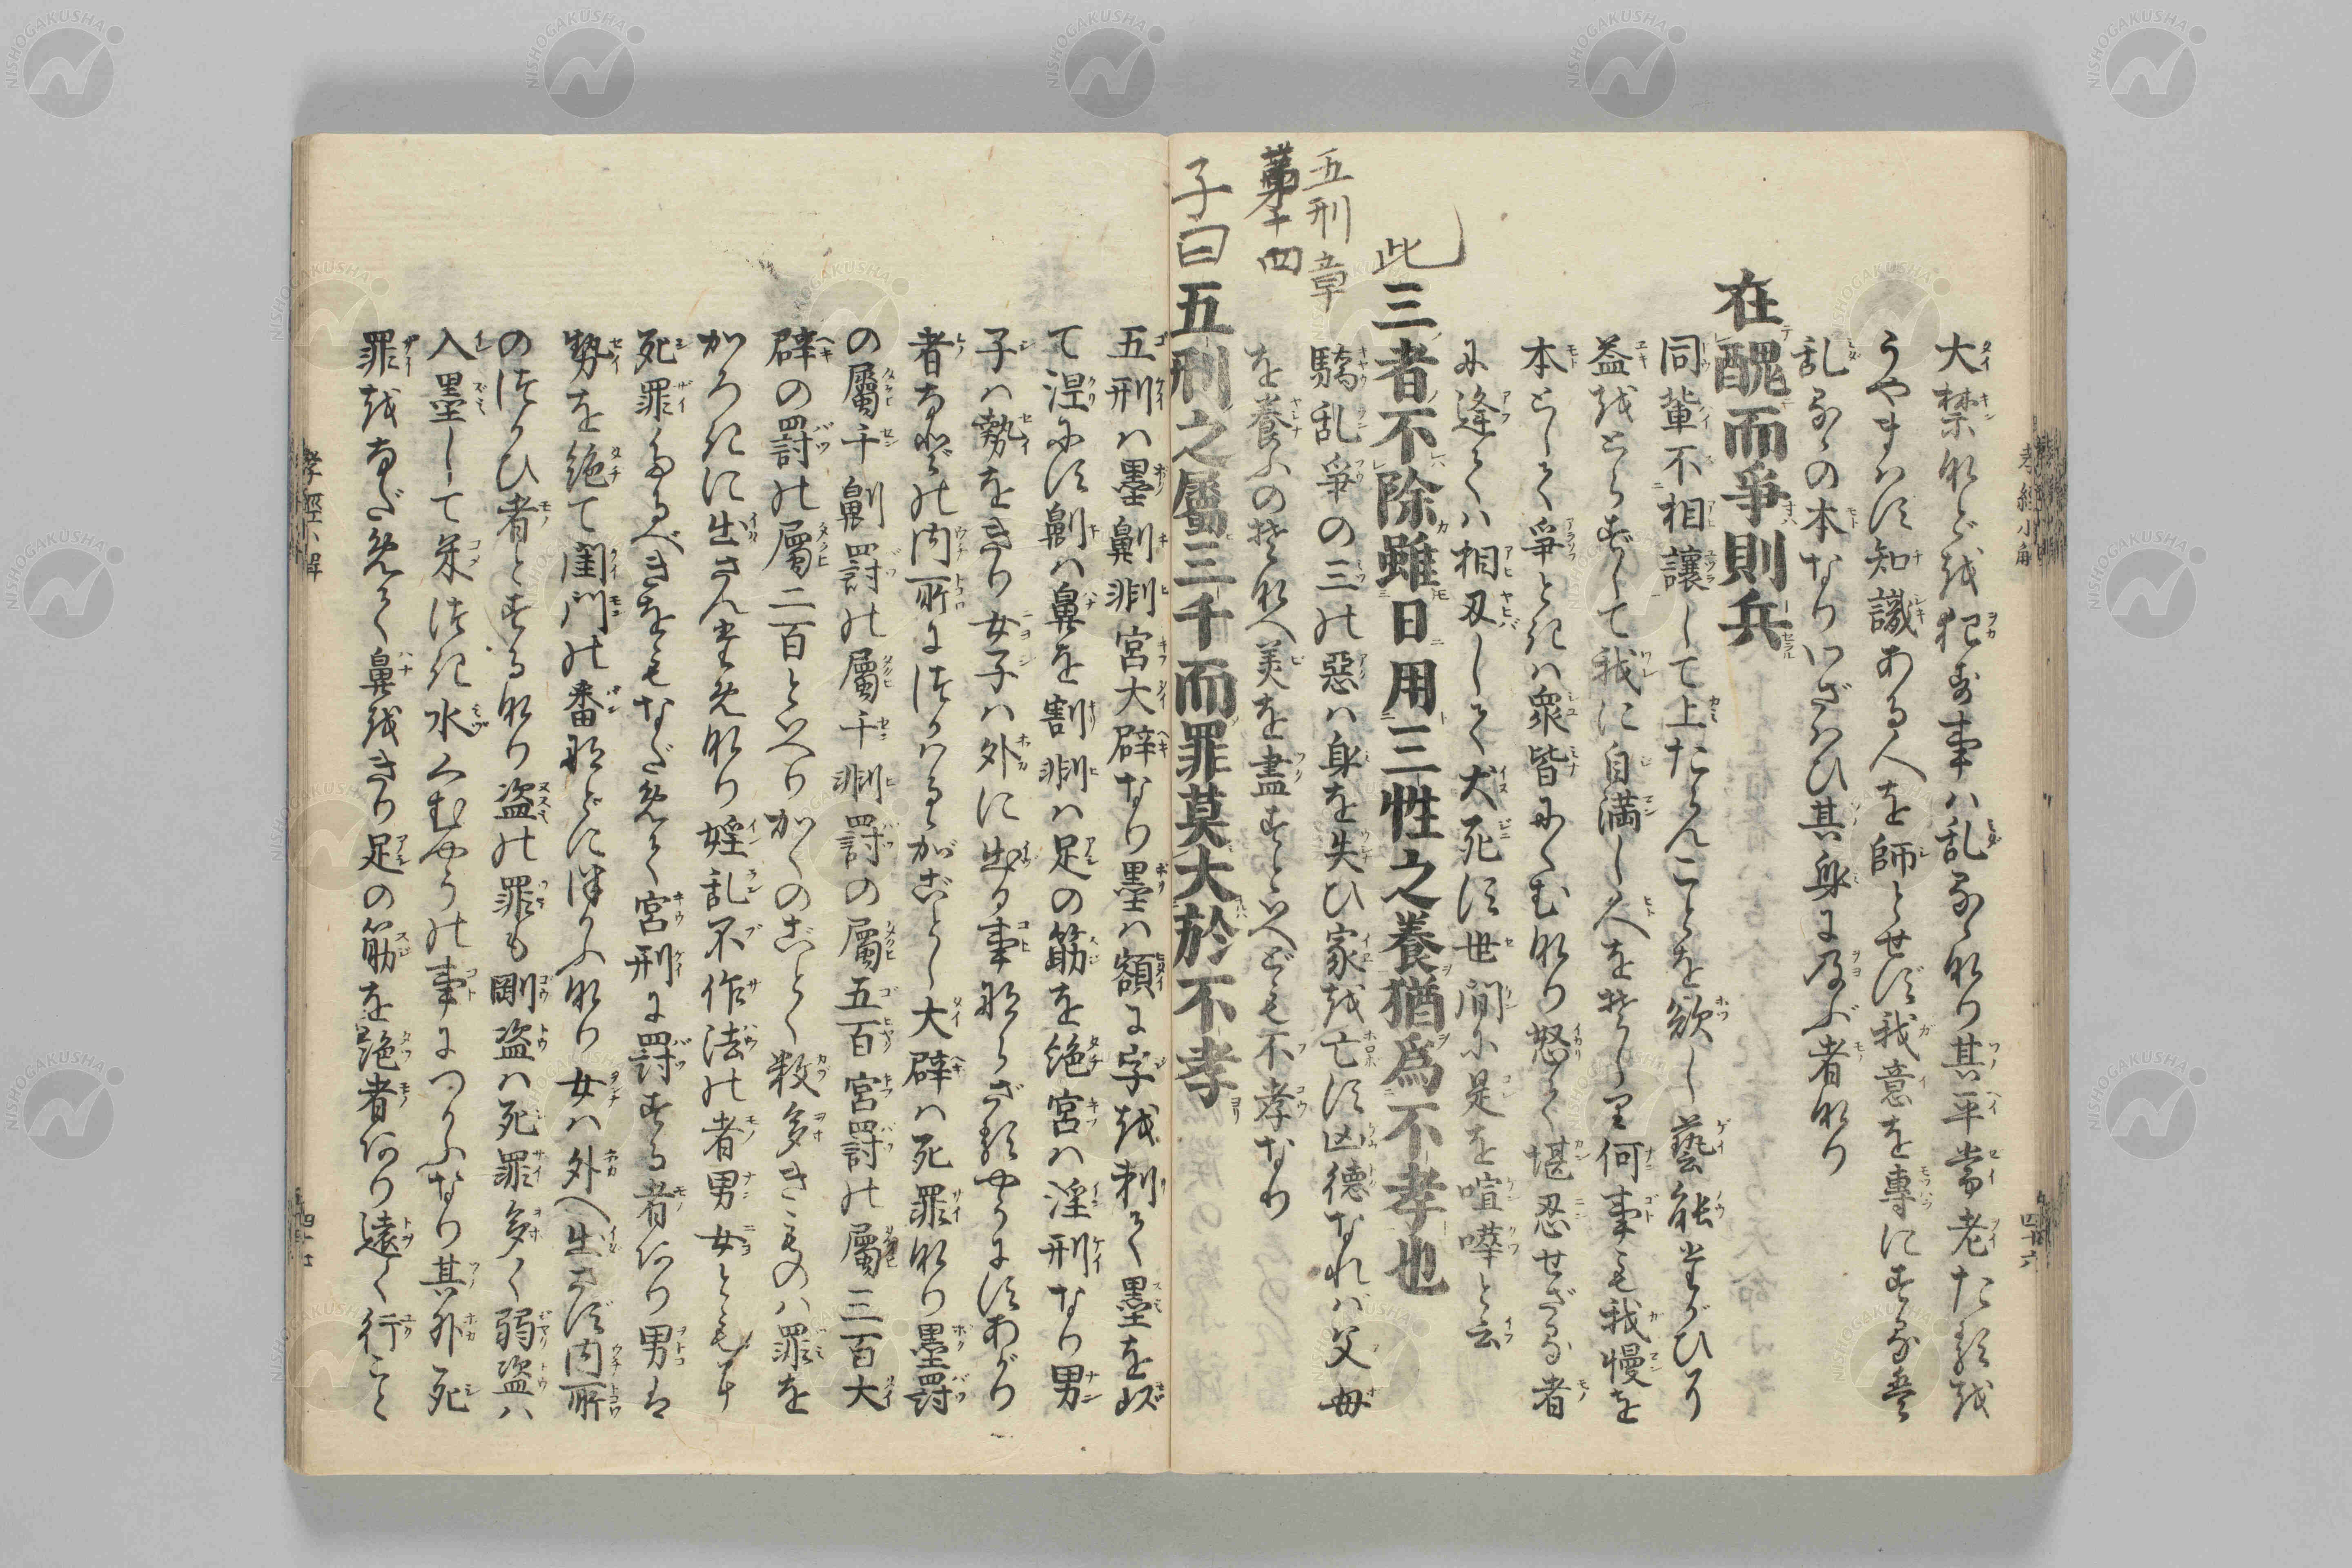 大禁などを犯す事ハ乱るゝなり其平常老たるを
うやまはす知識ある人を師とせず我意を專にする是
乱るゝの本なりわざハひ其身に及ぶ者なり
在醜而爭則兵
同輩不相讓して上たらんことを欲し藝能
益をとらずして我に自満し人を何事も我慢を
本として爭ときは衆皆にくむなり怒て堪忍せざる者
に逢てハ相刄して犬死す世間に是を喧嘩と云
此三者不除雖日用三牲之養猶爲不孝也
五刑章
驕乱爭の三の惡ハ身を失ひ家を亡す凶德なれバ父母
第十四
を養ふのそなへ美を盡すといへども不孝なり
子曰五刑之屬三千而罪莫大於不孝
五刑ハ墨劓剕宮大辟なり墨ハ額に字を刺て墨を
て涅にす劓ハ鼻を割剕ハ足の筋を絶宮ハ淫刑なり男
子ハ勢をきり女子ハ外に出る事ならざるやうにすあがり
者などの内所につかハるゝがごとし大辟ハ死罪なり墨罸
の屬千劓罸の屬千剕罸の屬五百宮罸の屬三百大
辟の罸の屬二百といへり かくのごとく数多きものハ罪を
かろきに出さんため なり 婬乱不作法の者男女とも
死罪なるべきをもなだめて宮刑に罸する者あり男は
勢を絶て閨門の番などにつかふなり女ハ外へ出さず内所
のつかひ者とするなり盗の罪も剛盗ハ死罪多く弱盗ハ
入墨して米つき水くむやうの事につかふなり其外死
罪をなだめて鼻をきり足の筋を絶者あり遠く行こと
孝經小解
四十六
孝經小解
四十七
NISHOGAKUSHA